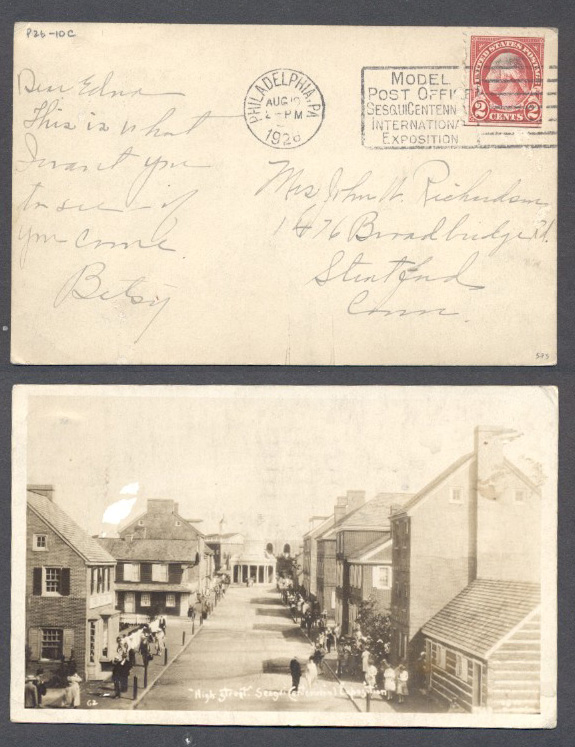 P26-10C
Dear Edna
This is what
I want you
to see - if
you come.
Betsy
PHILADELPHIA, PA.
AUG 19
2-PM
1926
MODEL
POST OFFI
SESQUICENTENN
INTERNATIONA
EXPOSITION
UNITED STATES POSTAGE
2 2
CENTS
Mrs John W. Richardson
1476 Broadbridge Rd.
Stratford
Conn.
"High Street" Sesqui-Centennial Exposition